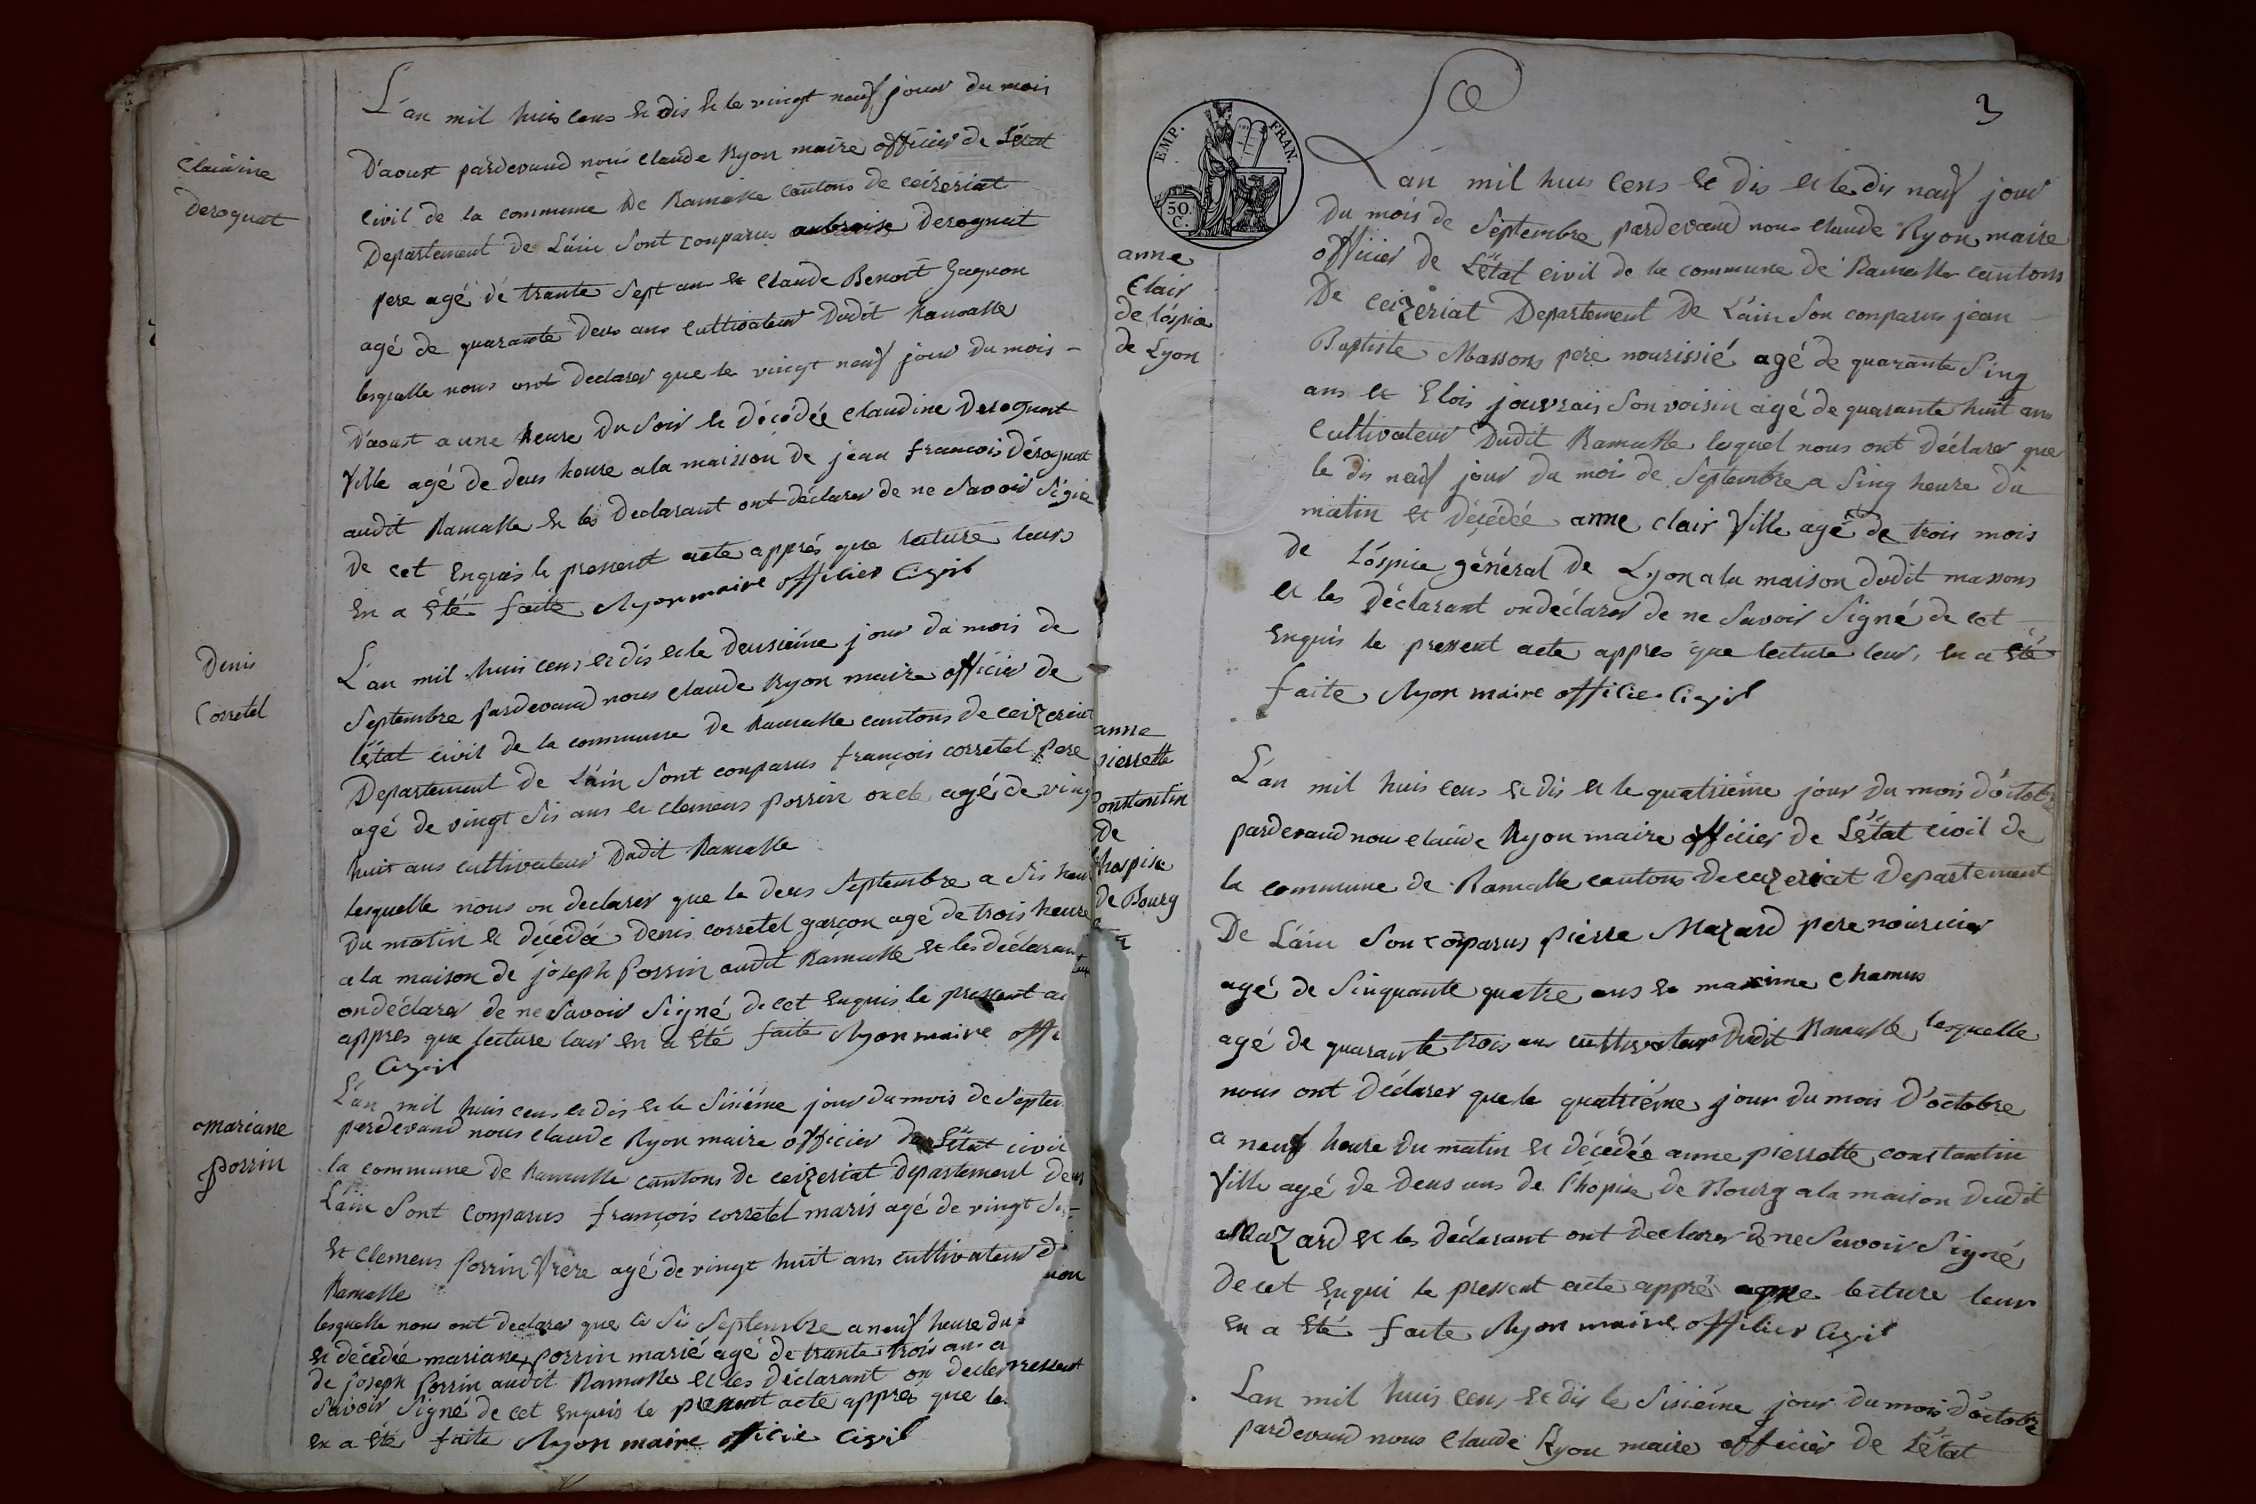 Claudine
Deroguat
L'an mil huis cens et dis et le vingt neuf jour du mois
D'aoust pardevand nous claude Ryon maire officier de L'état
civil de la commune de Ramasse cantons de ceizeriat
Departement de L'ain sont conparus Deroguat
pere agé de trante sept ans et claude Benoit Gagnon
agé de quarante deus ans cultivateur Dudit Ramasse
lesquelle nous ont declarer que le vingt neuf jour du mois -
D'aoust a une heure Du Soir et décédée claudine Deroguat
fille agé de deus heure a la maison de jean francois Déroguat
audit Ramasse et les Declarant ont déclarer de ne Savoir Signé
de cet enquis le pressent acte apprés que lecture leur
en a été faite Ryon maire officier Civil
Denis
Corretel
L'an mil huis cens et dis et le deusiéme jour du mois de
Septembre pardevand nous claude Ryon maire officier de
l'état civil de la commune de Ramasse cantons de ceizeriat
Departement de L'ain sont conparus françois corretel pere
agé de vingt sis ans et clemens Porrin oncle agé de vingt
huit ans cultivateur Dudit Ramasse
lesquelle nous on declarer que le deus Septembre a sis heu
du matin et décédé Denis corretel garçon agé de trois heure
a la maison de joseph Porrin audit Ramasse et les déclarant
on déclarer de ne Savoir Signé de cet enquis le pressent ac
appres que lecture leur en a été faite Ryon maire offi
Civil
Mariane
Porrin
L'an mil huis cens et dis et le Siziéme jour du mois de Septem
pardevand nous claude Ryon maire officier de L'état civil
la commune de Ramasse cantons de ceizeriat departement de
L'ain Sont conparus françois corretel maris agé de vingt sis
et clemens Porrin frere agé de vingt huit ans cultivateur d
Ramasse
lesquelle nous ont declarer que le sis Septembre a neuf heure du
et décédée mariane Porrin marié agé de trante trois ans a
de joseph Porrin audit Ramasse et les déclarant on decler
Savoir Signé de cet enquis le pressent acte appres que le
en a été faite Ryon maire officié Civil
3
EMP. FRAN.
50. C.
anne
Clair
de l'óspice
de Lyon
L'an mil huis cens et dis et le dis neuf jour
Du mois de Septembre pardevand nous claude Ryon maire
officier de L'état civil de la commune de Ramasse cantons
De ceizériat Departement De L'ain Son conparus jean
Baptiste Massons pere nourissié agé de quarante sinq
ans et Elois jouvrais son voisin agé de quarante huit ans
cultivateur Dudit Ramasse lequel nous ont déclarer que
le dis neuf jour du mois de Septembre a sinq heure du
matin et décédée anne clair fille agé de trois mois
de L'óspice général de Lyon a la maison dudit massons
et les déclarant on déclarer de ne Savoir Signé de cet
enquis le pressent acte appres que lecture leur, en a été
faite Ryon maire officie Civil
anne
pierrette
constantin
De
l'hospice
de Bourg
L'an mil huis cens et dis et le quatriéme jour du mois d'octobre
pardevand nous claude Ryon maire officier de L'état civil de
la commune de Ramasse cantons de ceizeriat Departement
De L'ain Son conparus pierre Mazard pere nouricier
agé de Sinquante quatre ans et maxime chamus
agé de quarante trois ans cultivateur Dudit Ramasse lesquelle
nous ont déclarer que le quatriéme jour du mois D'octobre
a neuf heure du matin et décédée anne pierrette constantin
fille agé de deus ans de l'hopise de Bourg a la maison dudit
Mazard et les déclarant ont declarer de ne Savoir Signé
De cet enqui le pressent acte apprés que lecture leur
en a été faite Ryon maire officier Civil
L'an mil huis cens et dis le Sisiéme jour du mois d'octobre
pardevand nous claude Ryon maire officier de L'état